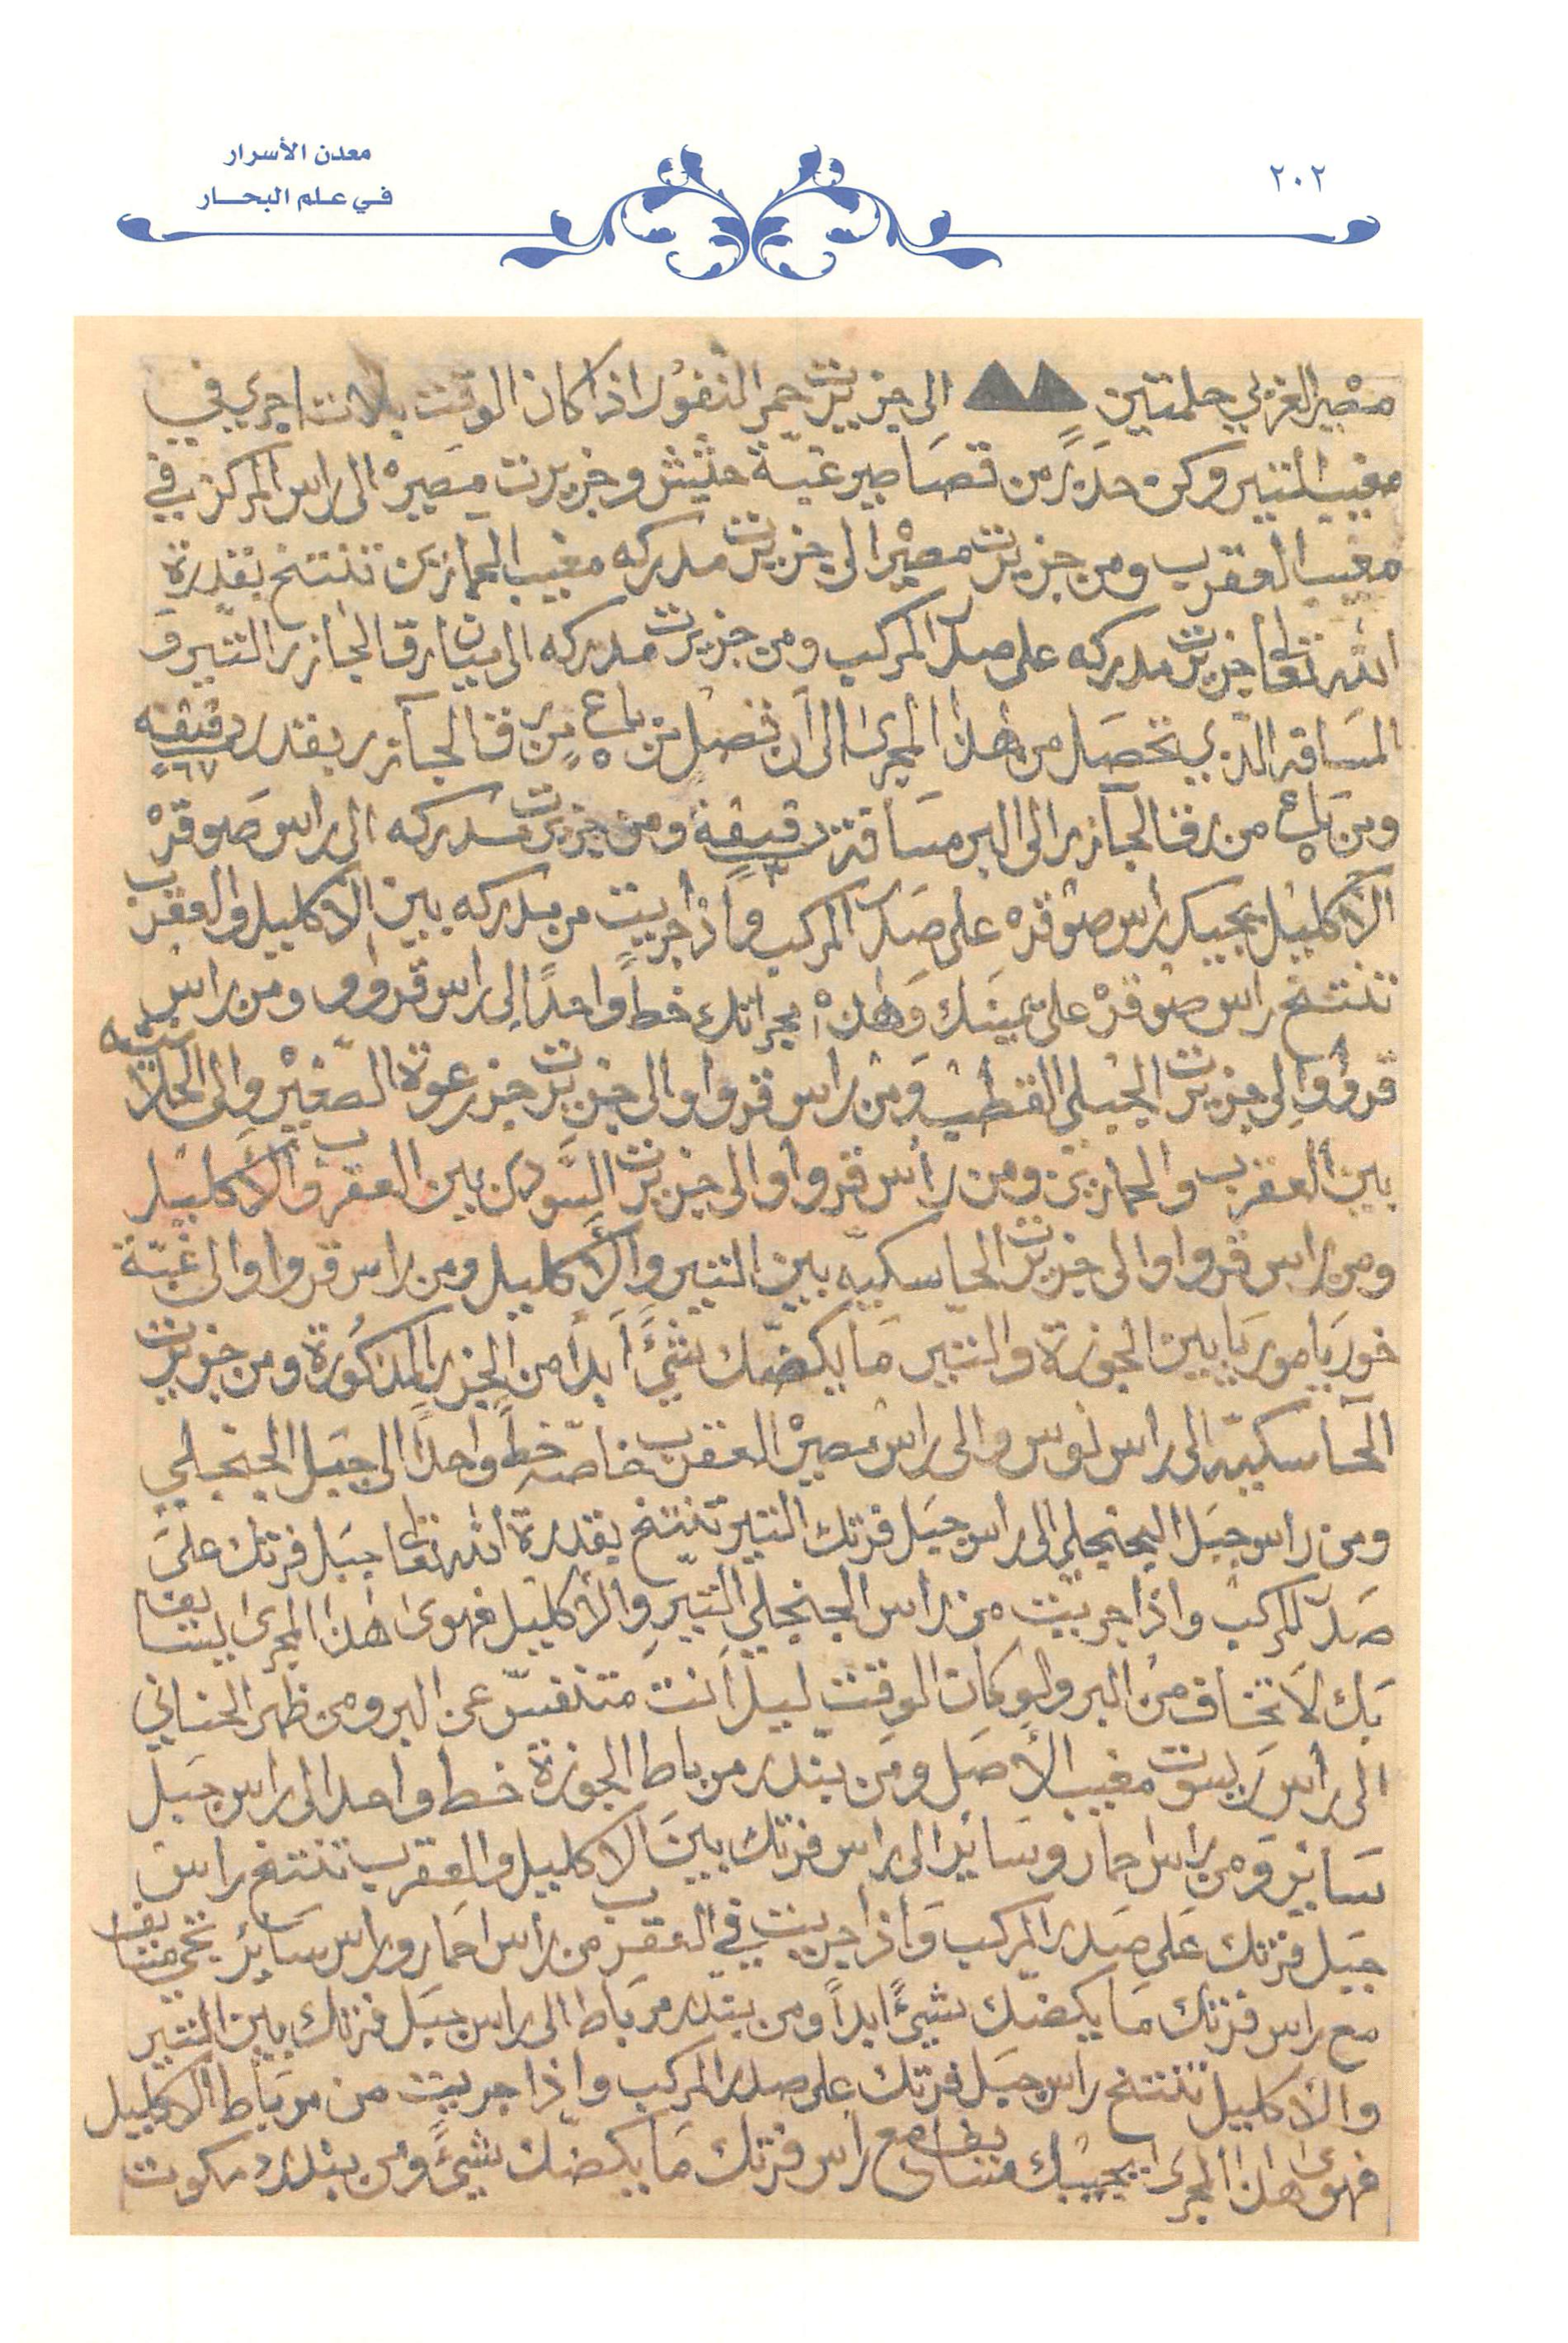 معدن الأسرار
في علم البحار
٢٠٢
مصير الغربي حلمتين الى جزيرت حمر النفور اذا كان الوقت بلانت اجري في
مغيب التير وكن حذر من قصاصير غبة حشيش وجزيرت مصيره الى راس المركز في
مغيب العقرب ومن جزيرت مصيره الى جزيرت مدركه مغيب الحمارين تنتخ بقدرة
الله تعا جزيرت مدركه على صدر المركب ومن جزيرت مدركه الى بيان رق الجازر التير و
المسافه الذي تحصل من هذا المجرى الى أن تصل من باع من رق الجازر بقدر دقيقه ٦٧
ومن باع من رق الجازر الى البر مسافة دقيقة ومن جزيرت مدركه الى راس صوقره
الاكليل يجيك رأس صوقره على صدر المركب واذا جريت من مدركه بين الاكليل والعقرب
تنتخ راس صوقره على يمينك وهذه مجراتك خطا واحدا الى راس قرواو ومن راس
قرواو الى جزيرت الجبلي القطب ومن راس قرواو الى جزيرت جزر عوة الصغير والى الحلانيه
بين العقرب والحمارين ومن رأس قرواو الى جزيرت السودى بين العقرب والاكليل
ومن راس قرواو الى جزيرت الحاسكيه بين التير والأكليل ومن راس قرواو الى غبة
خوريا موريا بين الجوزة والتير ما يكضك شئ أبدا من الجزر المذكورة ومن جزيرت
الحاسكيه الى راس نوس والى راس مصير العقرب خاصه خط واحدا الى جبل الجنجلي
ومن راس جبل الجنجلي الى راس جبل فرتك التير تنتخ بقدرة الله تعا جبل فرتك على
صدر المركب واذا جريت من راس الجنجلي التير والأكليل فهوى هذا المجرى يتنايف
بك لا تخاف من البر ولو كان الوقت ليل أنت متنفس عن البر ومن ظهر الحناني
الى راس ريسوت مغيب الأصل ومن بندر مرباط الجوزة خط واحدا الى راس جبل
ساير ومن راس حمار وساير الى راس فرتك بين الاكليل والعقرب تنتخ راس
جبل فرتك على صدر المركب واذا جريت في العقرب من رأس احمار وراس ساير تجي متنايف
مع راس فرتك ما يكضك شئ ابدا ومن بندر مرباط الى راس جبل فرتك بين التير
والاكليل تنتخ راس جبل فرتك على صدر المركب واذا جريت من مرباط الاكليل
فهوى هذا المجرى يجيبك متنايف مع راس فرتك ما يكضك شئ ومن بندر مكوت